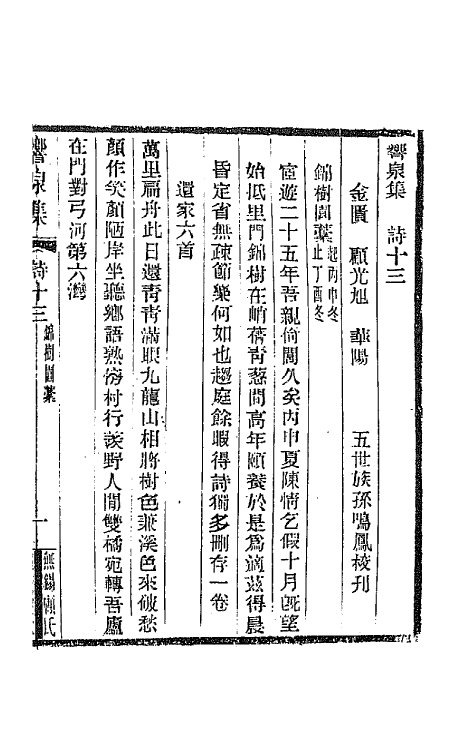 響泉集　詩十三
金匱　顧光旭　華陽　五世族孫鳴鳳校刊
錦樹園藁
起丙申冬
止丁酉冬
宦遊二十五年吾親倚閭久矣丙申夏陳情乞假十月旣望
始抵里門錦樹在峭蒨靑蔥間高年頤養於是爲適茲得晨
昏定省無疎節樂何如也趨庭餘暇得詩獨多刪存一卷
還家六首
萬里扁舟此日還靑靑滿眼九龍山相將樹色兼溪色來破愁
顏作笑顏陋岸坐聽鄉語熟傍村行羨野人閒雙橋宛轉吾廬
在門對弓河第六灣
響泉集
詩十三
錦樹園藁
一
無錫顧氏